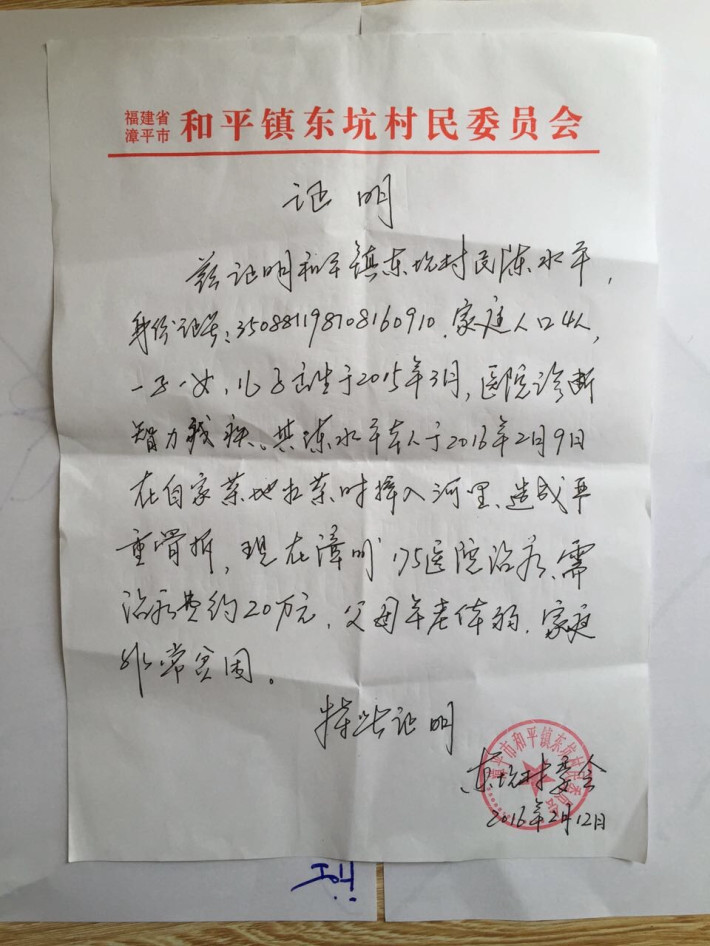 福建省
漳平市 和平镇东坑村民委员会
证明
兹证明和平镇东坑村民陈水平，
身份证号：350881198108160910.家庭人口4人，
一子一女，儿子出生于2015年3月，医院诊断
智力残疾、其陈水平本人于2016年2月9日
在自家菜地扛菜时摔入河里、造成严
重骨折，现在漳州175医院治疗、需
治疗费约20万元，父母年老体弱，家庭
非常贫困。
特此证明
东坑村委会
2016年2月12日
漳平市和平镇东坑村民委员会